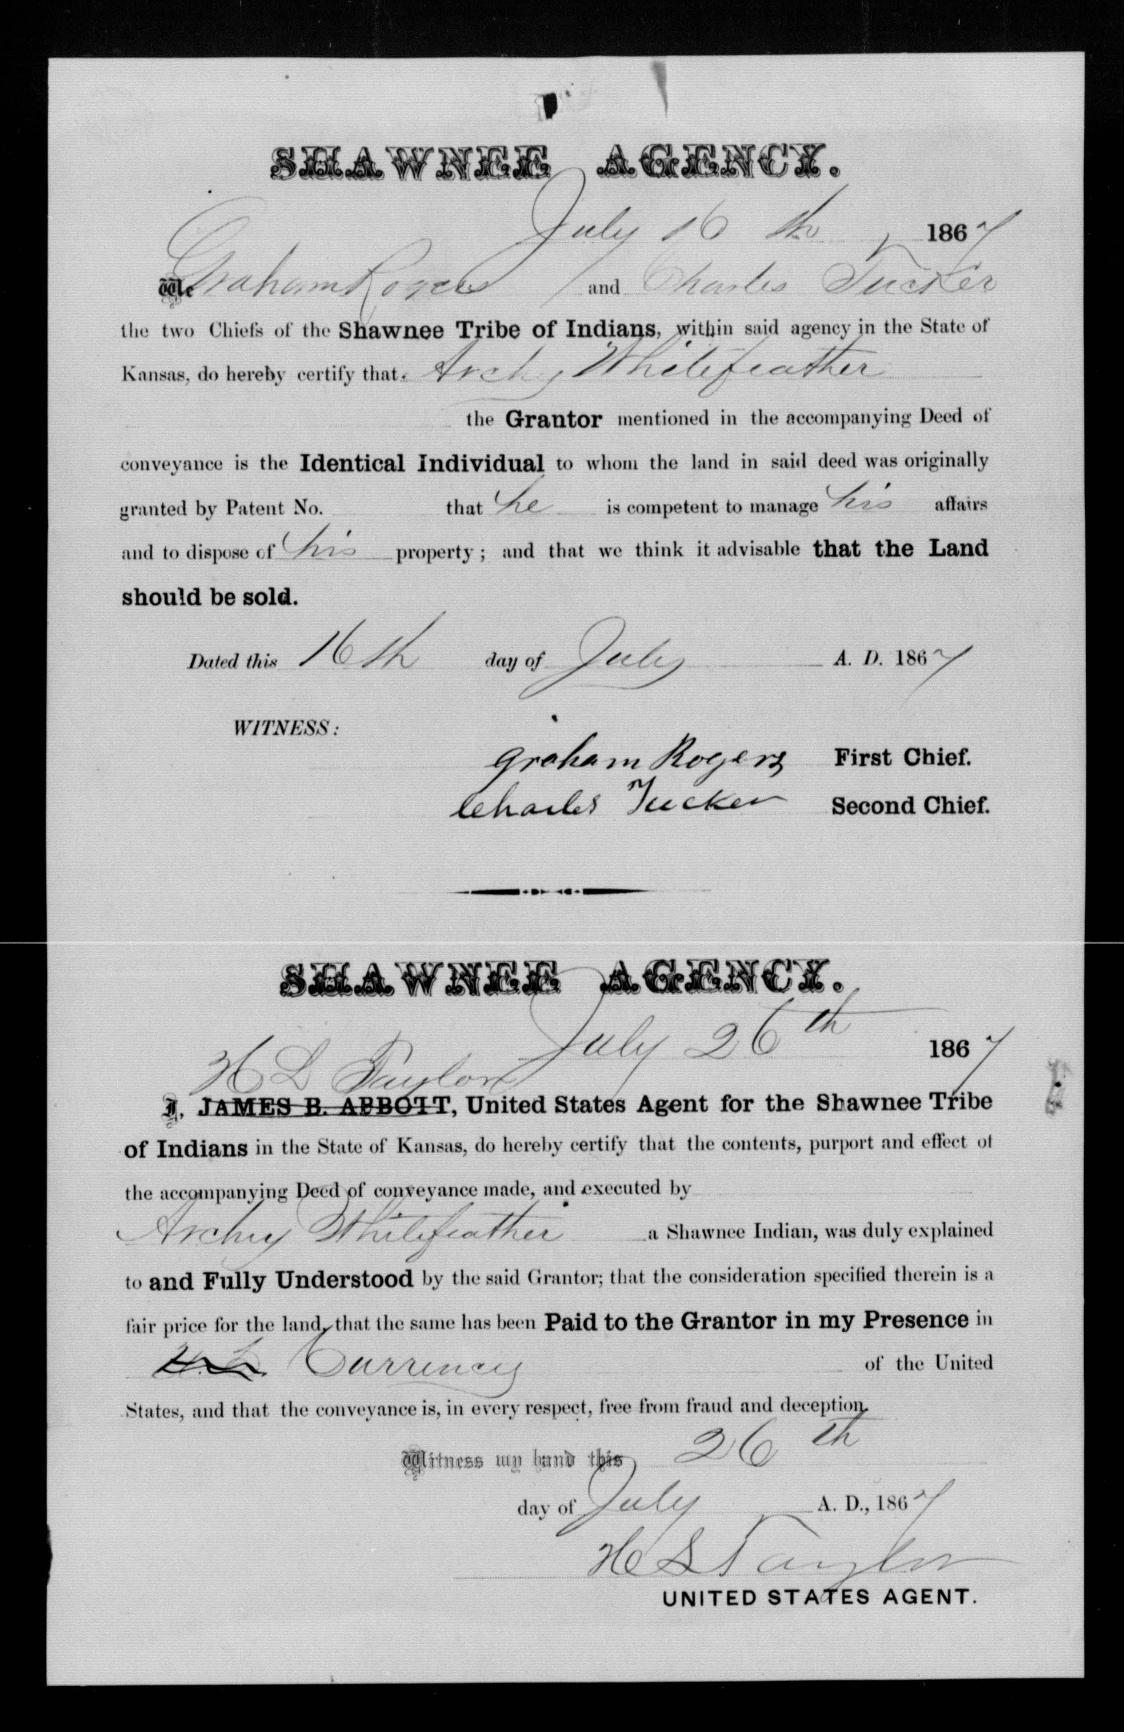 SHAWNEE AGENCY.
July 16 th 1867
We Graham Rogers and Charles Tucker
the two Chiefs of the Shawnee Tribe of Indians, within said agency in the State of
Kansas, do hereby certify that Archy Whitefeather
the Grantor mentioned in the accompanying Deed of
conveyance is the Identical Individual to whom the land in said deed was originally
granted by Patent No. that he is competent to manage his affairs
and to dispose of his property; and that we think it advisable that the Land
should be sold.
Dated this 16th day of July A. D. 1867
WITNESS:
Graham Rogers First Chief.
Charles Tucker Second Chief.
SHAWNEE AGENCY.
July 26th 1867
H L Taylor
I, JAMES B. ABBOTT, United States Agent for the Shawnee Tribe
of Indians in the State of Kansas, do hereby certify that the contents, purport and effect of
the accompanying Deed of conveyance made, and executed by
Archy Whitefeather a Shawnee Indian, was duly explained
to and Fully Understood by the said Grantor; that the consideration specified therein is a
fair price for the land, that the same has been Paid to the Grantor in my Presence in
Currency of the United
States, and that the conveyance is, in every respect, free from fraud and deception.
Witness my hand this 26th
day of July A. D., 1867
H L Taylor
UNITED STATES AGENT.